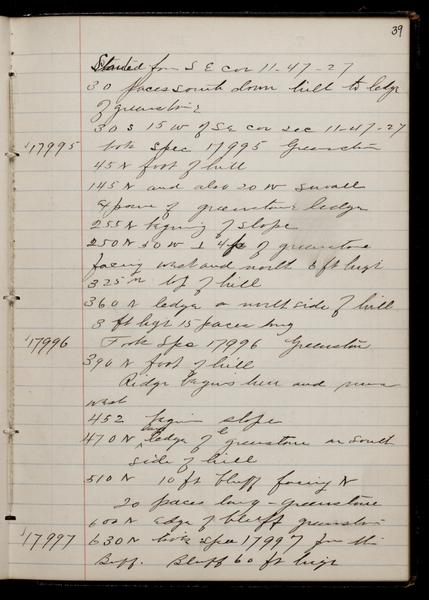 39
Started from S E cor 11-47-27
30 paces south down hill to ledge
of greenstone
30 S 15 W of SE cor sec 11-47-27
17995 took spec 17995 Greenstone
45 N foot of hill
145 N and also 20 W small
exposure of greenstone ledge
255 N begining of slope
250 N 50 W of greenstone
facing west and north 6 ft high
325 N top of hill
360 N ledge on north side of hill
3 ft high 15 paces long
17996 Took Spec 17996 Greenstone
390 N foot of hill
Ridge begins here and runs
west
452 begin slope
470 N ledge of greenstone on south
side of hill
510 N 10 ft bluff facing N
20 paces long - Greenstone
600 N edge of bluff greenstone
17997 630 N took spec 17997 from this
Bluff. Bluff 60 ft high